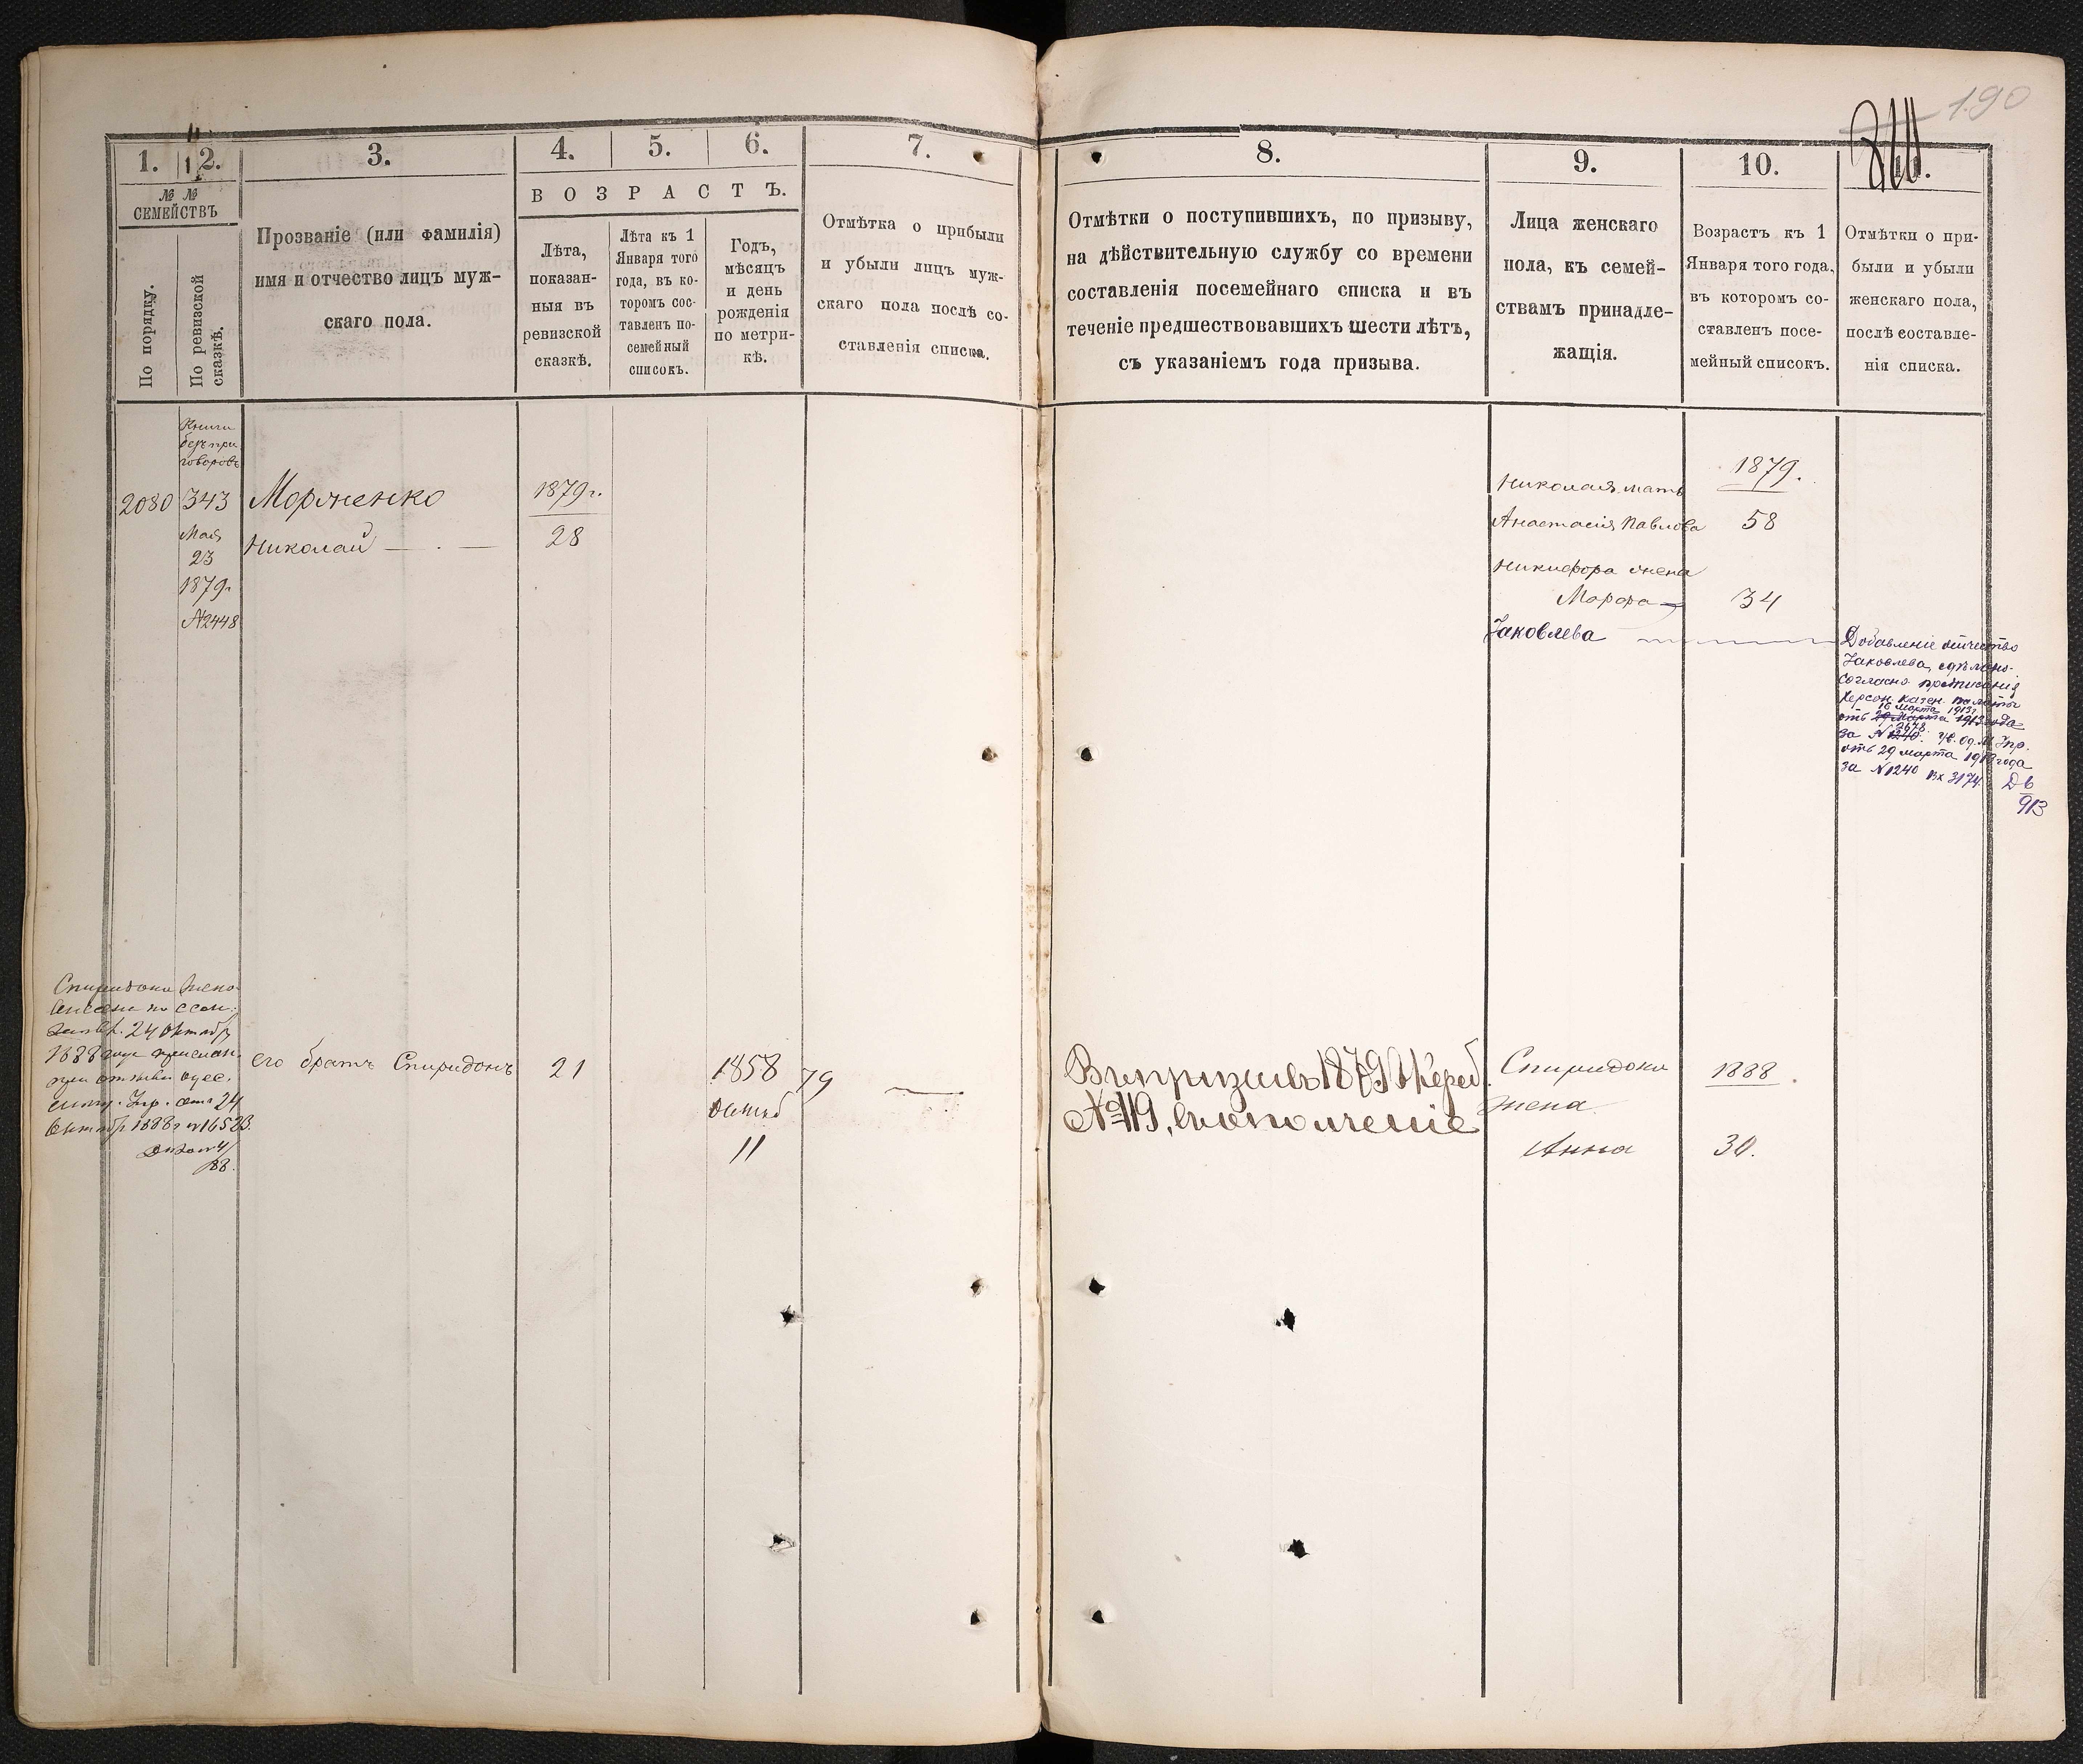 190
1. 2. 3. 4. 5. 6. 7.
№ №
СЕМЕЙСТВЪ
По порядку.
По ревизской
сказкѣ.
Прозваніе (или фамилія)
имя и отчество лицъ муж-
скаго пола.
ВОЗРАСТЪ.
Лѣта,
показан-
ныя въ
ревизской
сказкѣ.
Лѣта къ 1
Января того
года, въ ко-
торомъ сос-
тавленъ по-
семейный
списокъ.
Годъ,
мѣсяцъ
и день
рожденія
по метри-
кѣ.
Отмѣтка о прибыли
и убыли лицъ муж-
скаго пола послѣ со-
ставленія списка.
8. 9. 10.
Отмѣтки о поступившихъ, по призыву,
на дѣйствительную службу со времени
составленія посемейнаго списка и въ
теченіе предшествовавшихъ шести лѣтъ,
съ указаніемъ года призыва.
Лица женскаго
пола, къ семей-
ствамъ принадле-
жащія.
Возрастъ къ 1
Января того года,
въ которомъ со-
ставленъ посе-
мейный списокъ.
Отмѣтки о при-
были и убыли
женскаго пола,
послѣ составле-
нія списка.
Книги
безъ при
говоровъ
2080 343
Мая
23
1879г
№2448
Николай
1879г.
28
Николая мать
Анастасія Павлова
Никифора жена
Яковлева
1879.
58
34
Добавленіе отчество
Яковлева, сдѣлано
согласно предписанія
Херсон. казен. палаты
16 марта 1913г.
отъ 29 Марта 1913 года
2678
за №1240. Упр.
отъ 29 марта 1913 года
за №1240 Вх 3174.
913
Спиридона жена
24 октября
1888 года
отъ 24
октября 1888г №16523.
88.
его братъ Спиридонъ
21
1858
11
79
Въ призывъ 1879 г. жереб.
№119, въ ополченіе
Спиридона
жена
Анна
1888.
30.